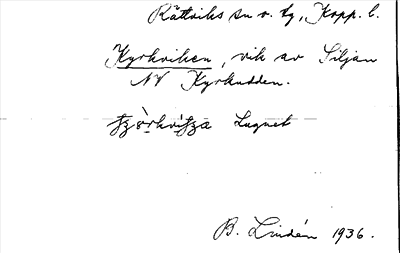 Rättviks sn o. tg, Kopp. l.
Kyrkviken, vik av Siljan
NV Kyrkudden.
Lugnet
B. Lindén 1936.